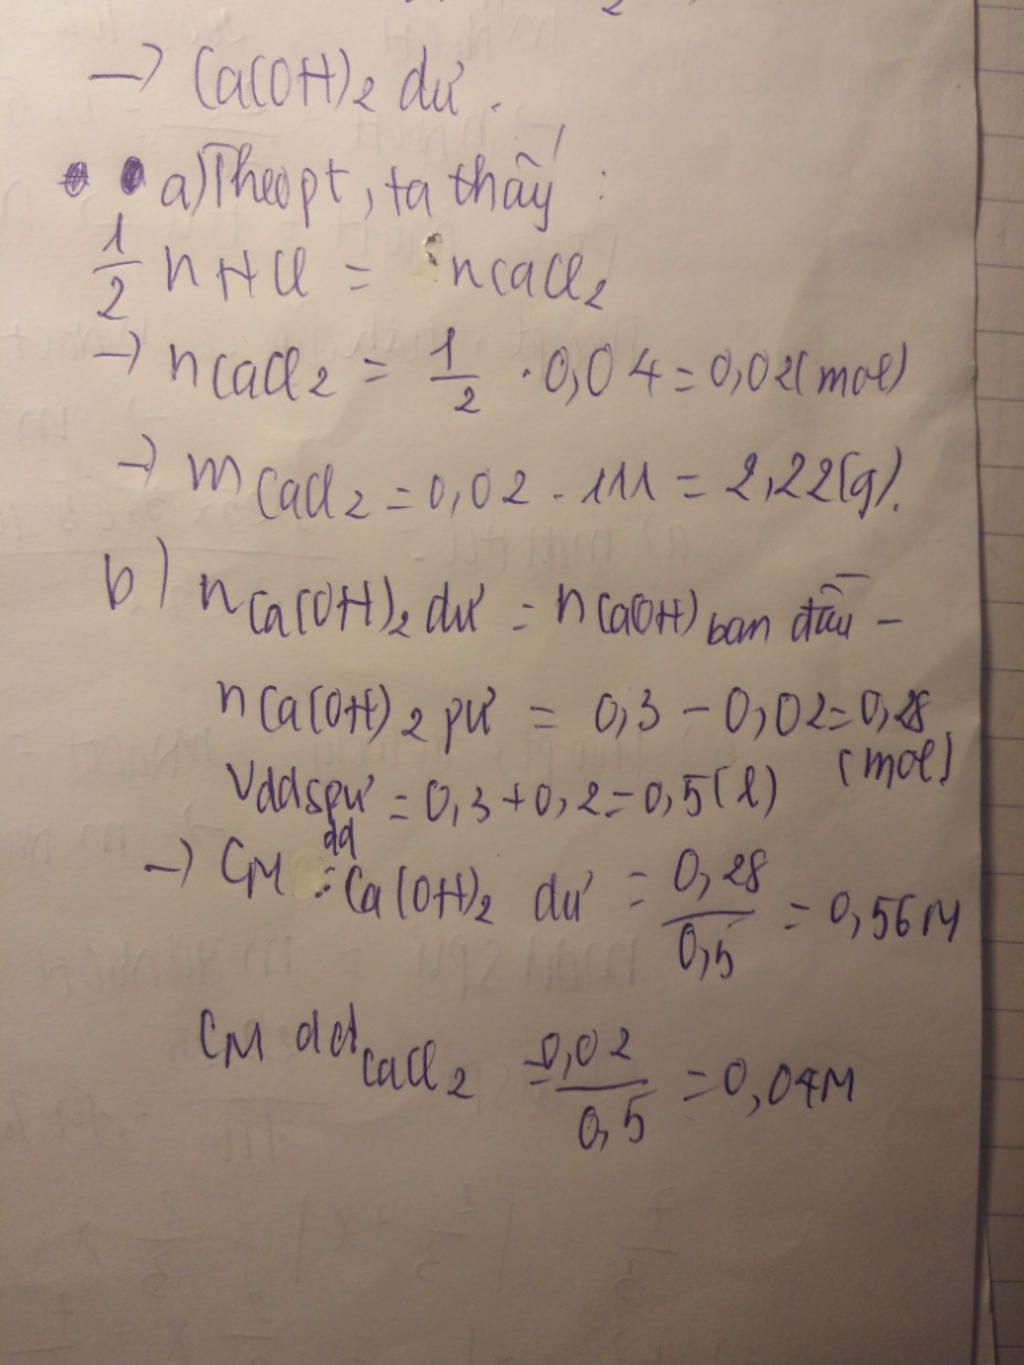 → Ca(OH)2 dư.
a) Theo pt, ta thấy:
1/2 nHCl = nCaCl2
→ nCaCl2 = 1/2 . 0,04 = 0,02(mol)
→ mCaCl2 = 0,02 . 111 = 2,22(g).
b) nCa(OH)2 dư = nCa(OH) ban đầu -
nCa(OH)2 pư = 0,3 - 0,02 = 0,28
(mol)
Vddspư = 0,3 + 0,2 = 0,5(l)
→ CM dd Ca(OH)2 dư = 0,28/0,5 = 0,56M
CM dd CaCl2 = 0,02/0,5 = 0,04M